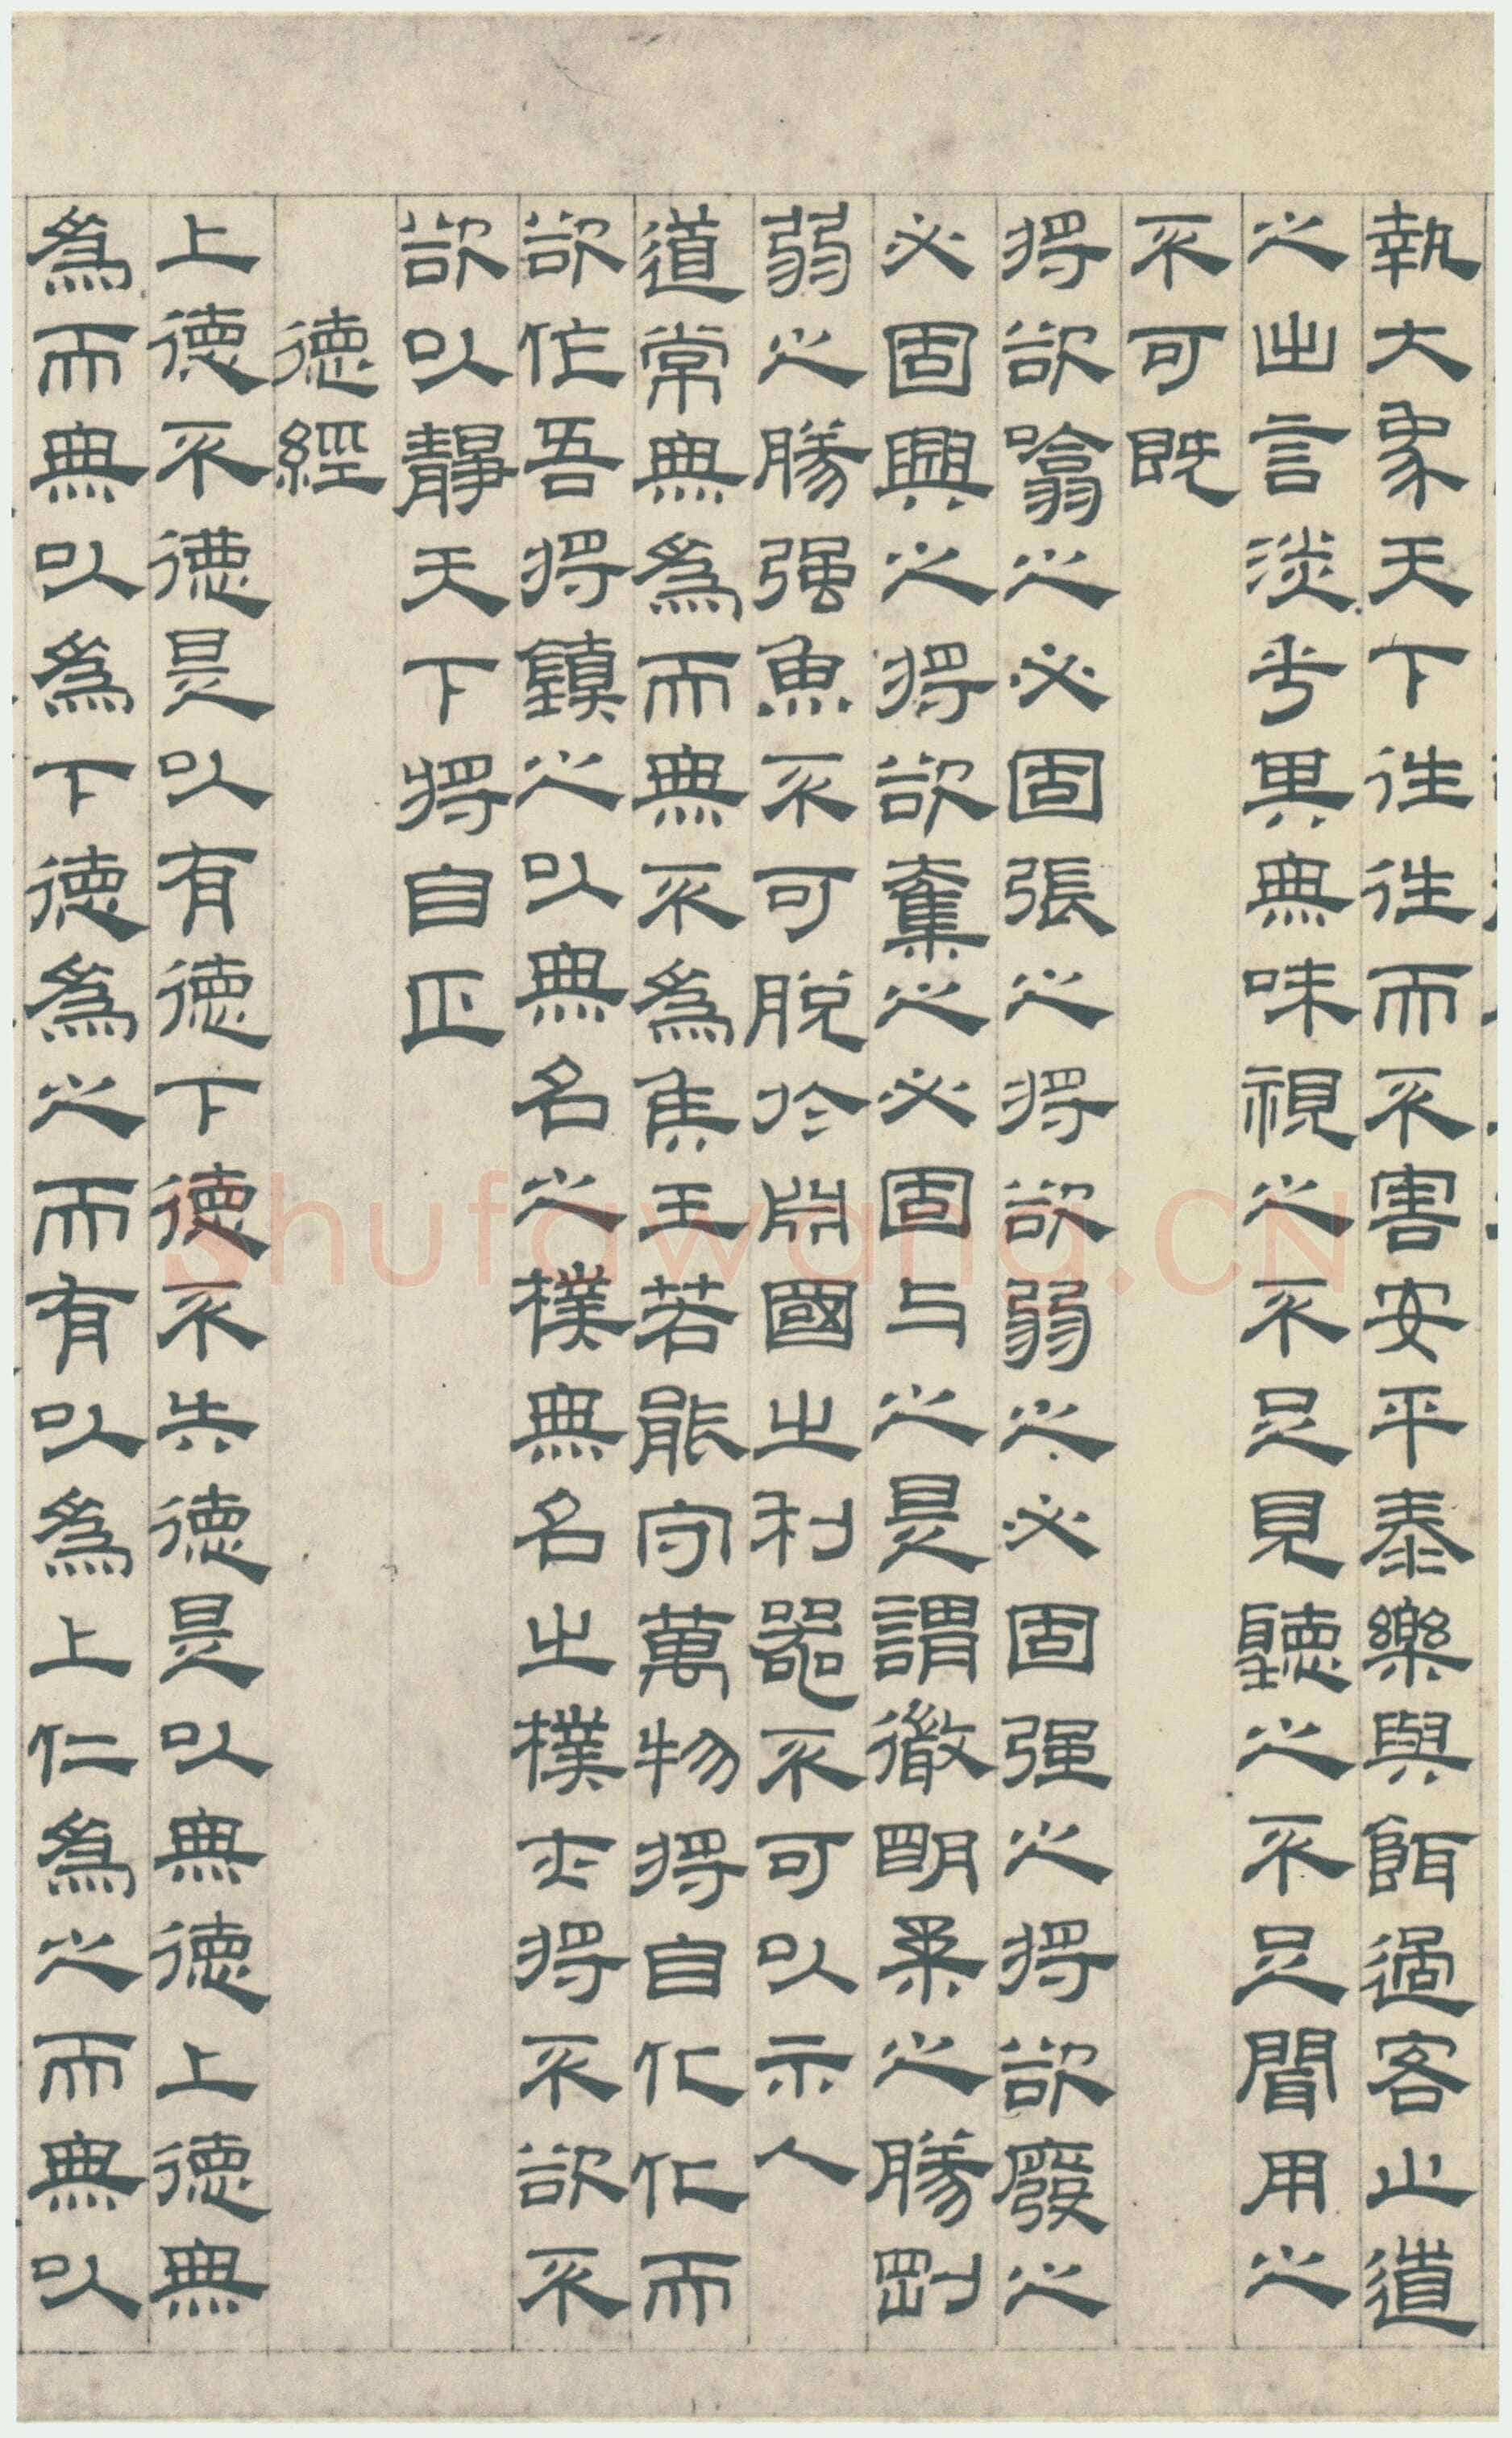 執大象天下往往而不害安平泰樂與餌過客止道
之出言淡乎其無味視之不足見聽之不足聞用之
不可既
將欲噏之必固張之將欲弱之必固强之將欲廢之
必固興之將欲奪之必固与之是謂微明柔之勝剛
弱之勝强魚不可脱於淵國之利器不可以示人
道常無爲而無不爲侯王若能守萬物將自化化而
欲作吾將鎮之以無名之樸無名之樸亦將不欲不
欲以靜天下將自正
德經
上德不德是以有德下德不失德是以無德上德無
爲而無以爲下德爲之而有以爲上仁爲之而無以
Shufawang.CN